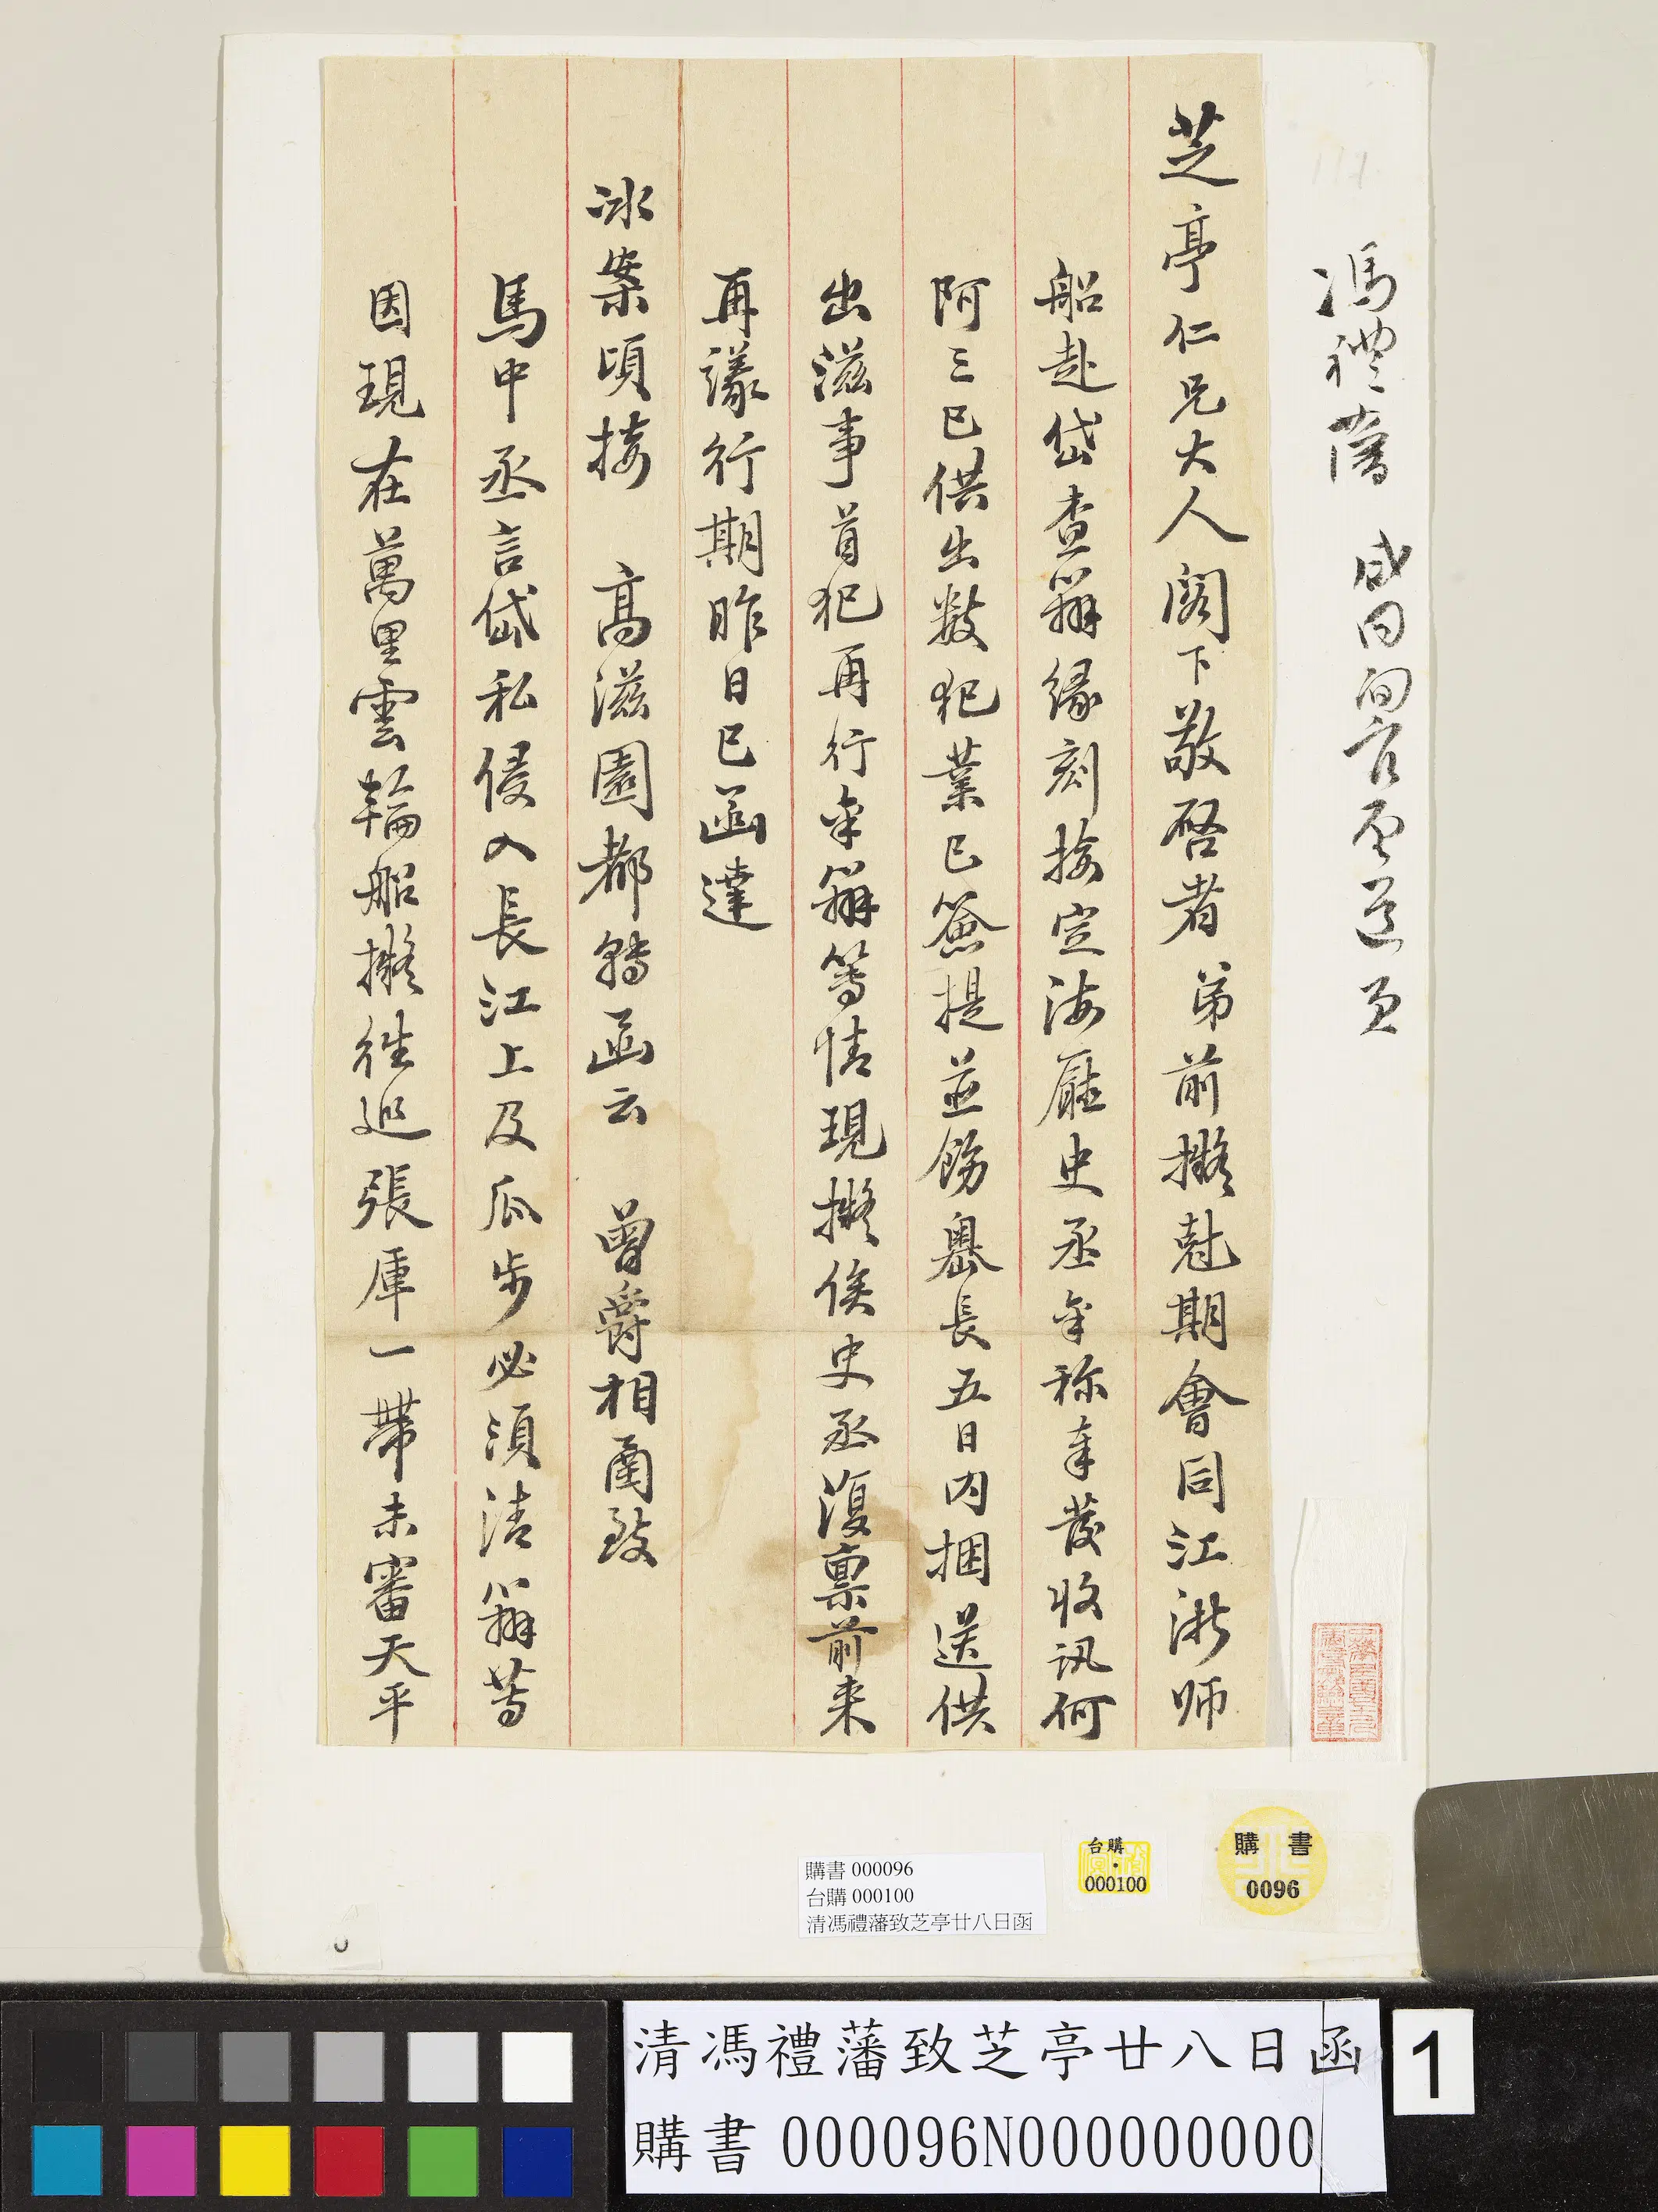 馮禮藩
芝亭仁兄大人閣下敬啓者弟前擬尅期會同江浙師
船赴岱查辦緣刻接定海廳史丞來稱奉發收訊何
阿三已供出數犯業已簽提並飭嶴長五日內捆送供
出滋事首犯再行來辦等情現擬俟史丞復稟前來
再議行期昨日已函達
冰案頃接 高滋園都轉函云 曾爵相函致
馬中丞言岱私侵入長江上及瓜步必須清辦等
因現在萬里雲輪船擬往巡張庫一帶未審天平
購書 000096
台購 000100
清馮禮藩致芝亭廿八日函
台購
000100
購書
0096
清馮禮藩致芝亭廿八日函
購書 000096N000000000
1